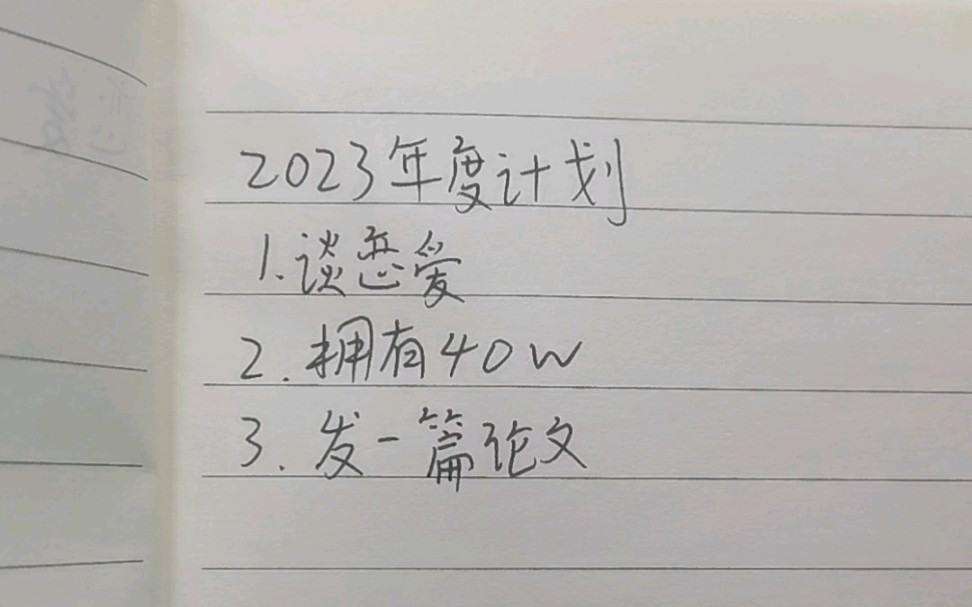 2023年度计划
1.谈恋爱
2.拥有40w
3.发一篇论文